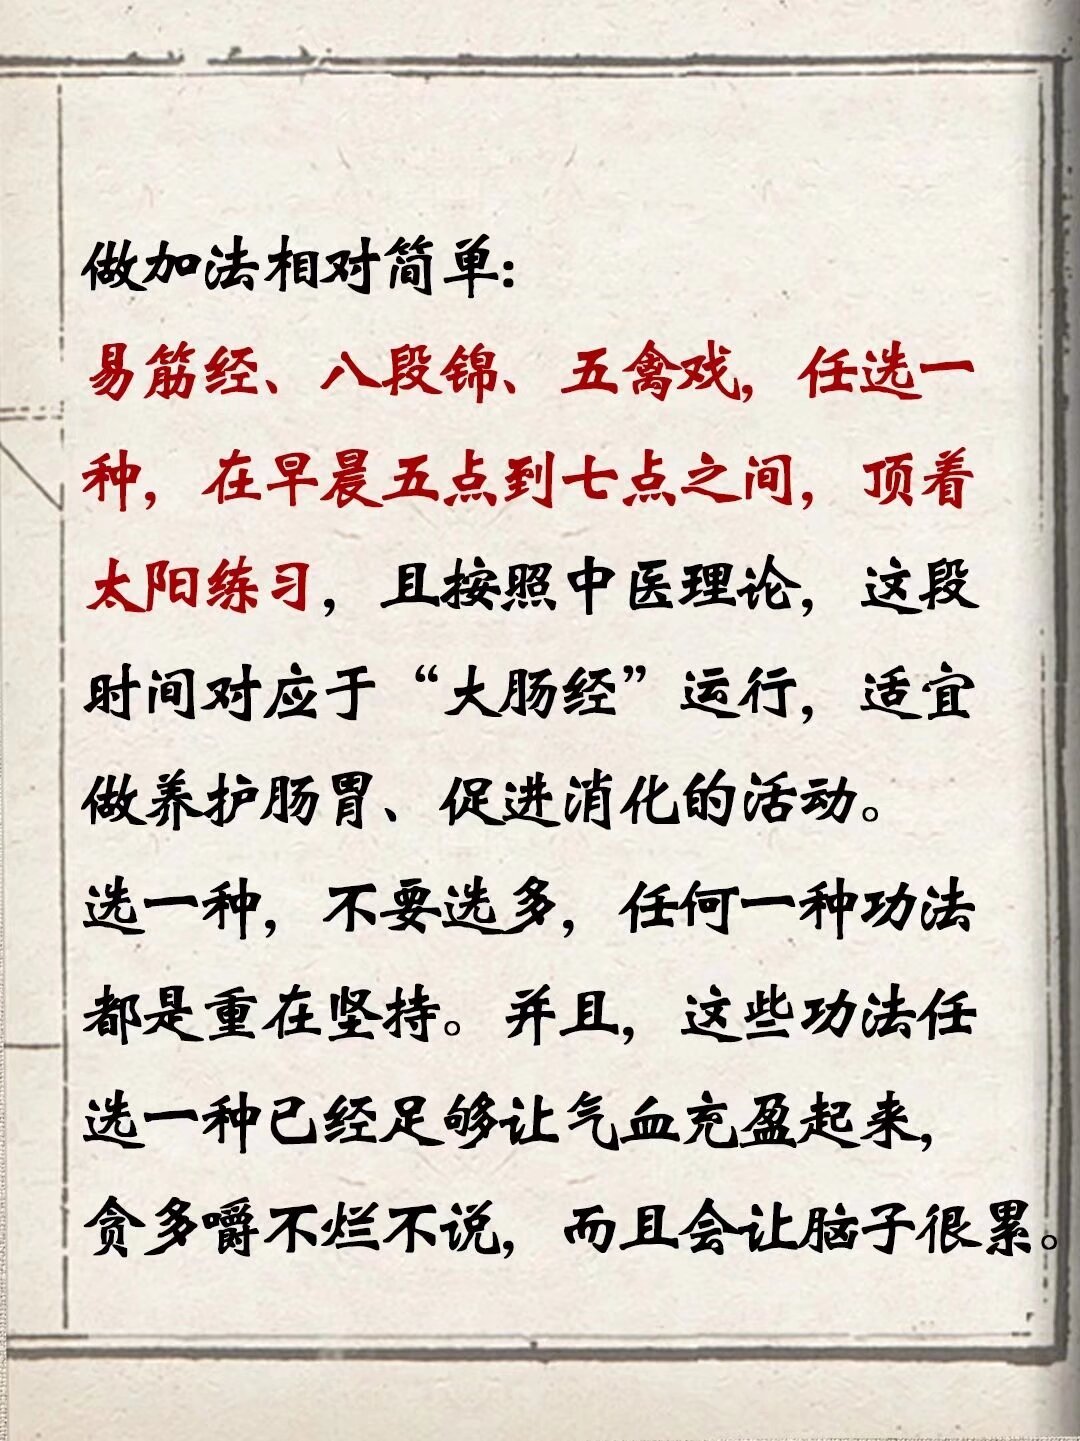 做加法相对简单:
易筋经、八段锦、五禽戏，任选一
种，在早晨五点到七点之间，顶着
太阳练习，且按照中医理论，这段
时间对应于“大肠经”运行，适宜
做养护肠胃、促进消化的活动。
选一种，不要选多，任何一种功法
都是重在坚持。并且，这些功法任
选一种已经足够让气血充盈起来，
贪多嚼不烂不说，而且会让脑子很累。